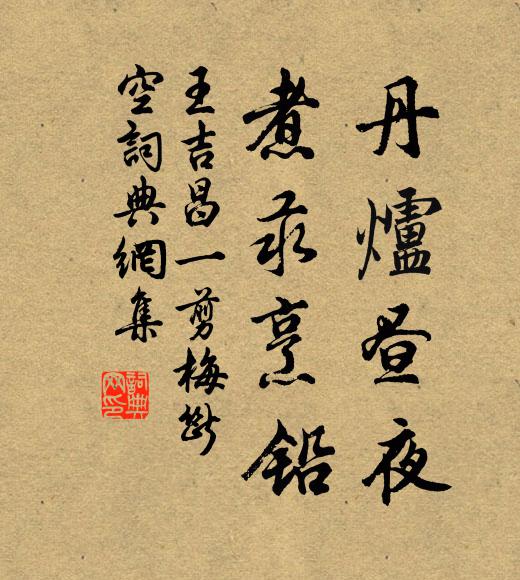 丹爐昼夜
煮汞烹鉛
王吉昌一剪梅斷
空詞典網集
詞典
网印